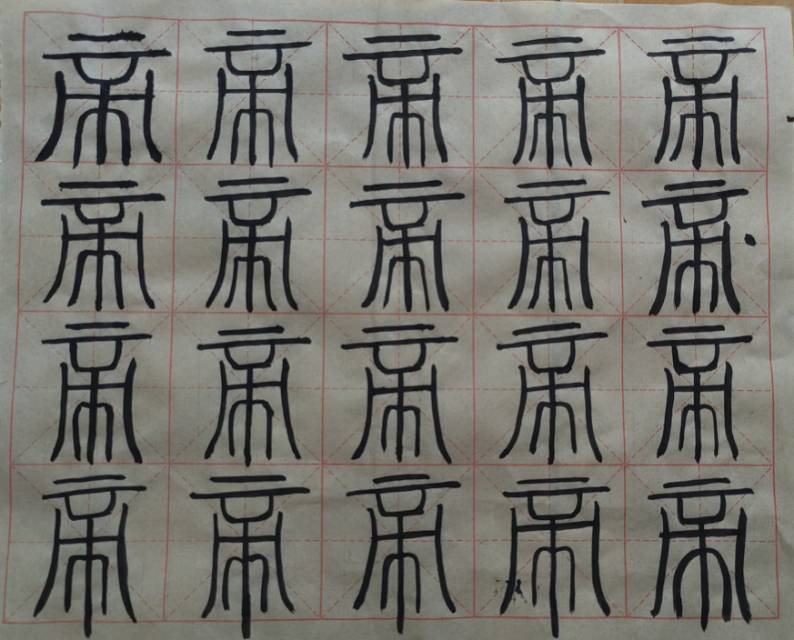 帝帝帝帝帝
帝帝帝帝帝
帝帝帝帝帝
帝帝帝帝帝